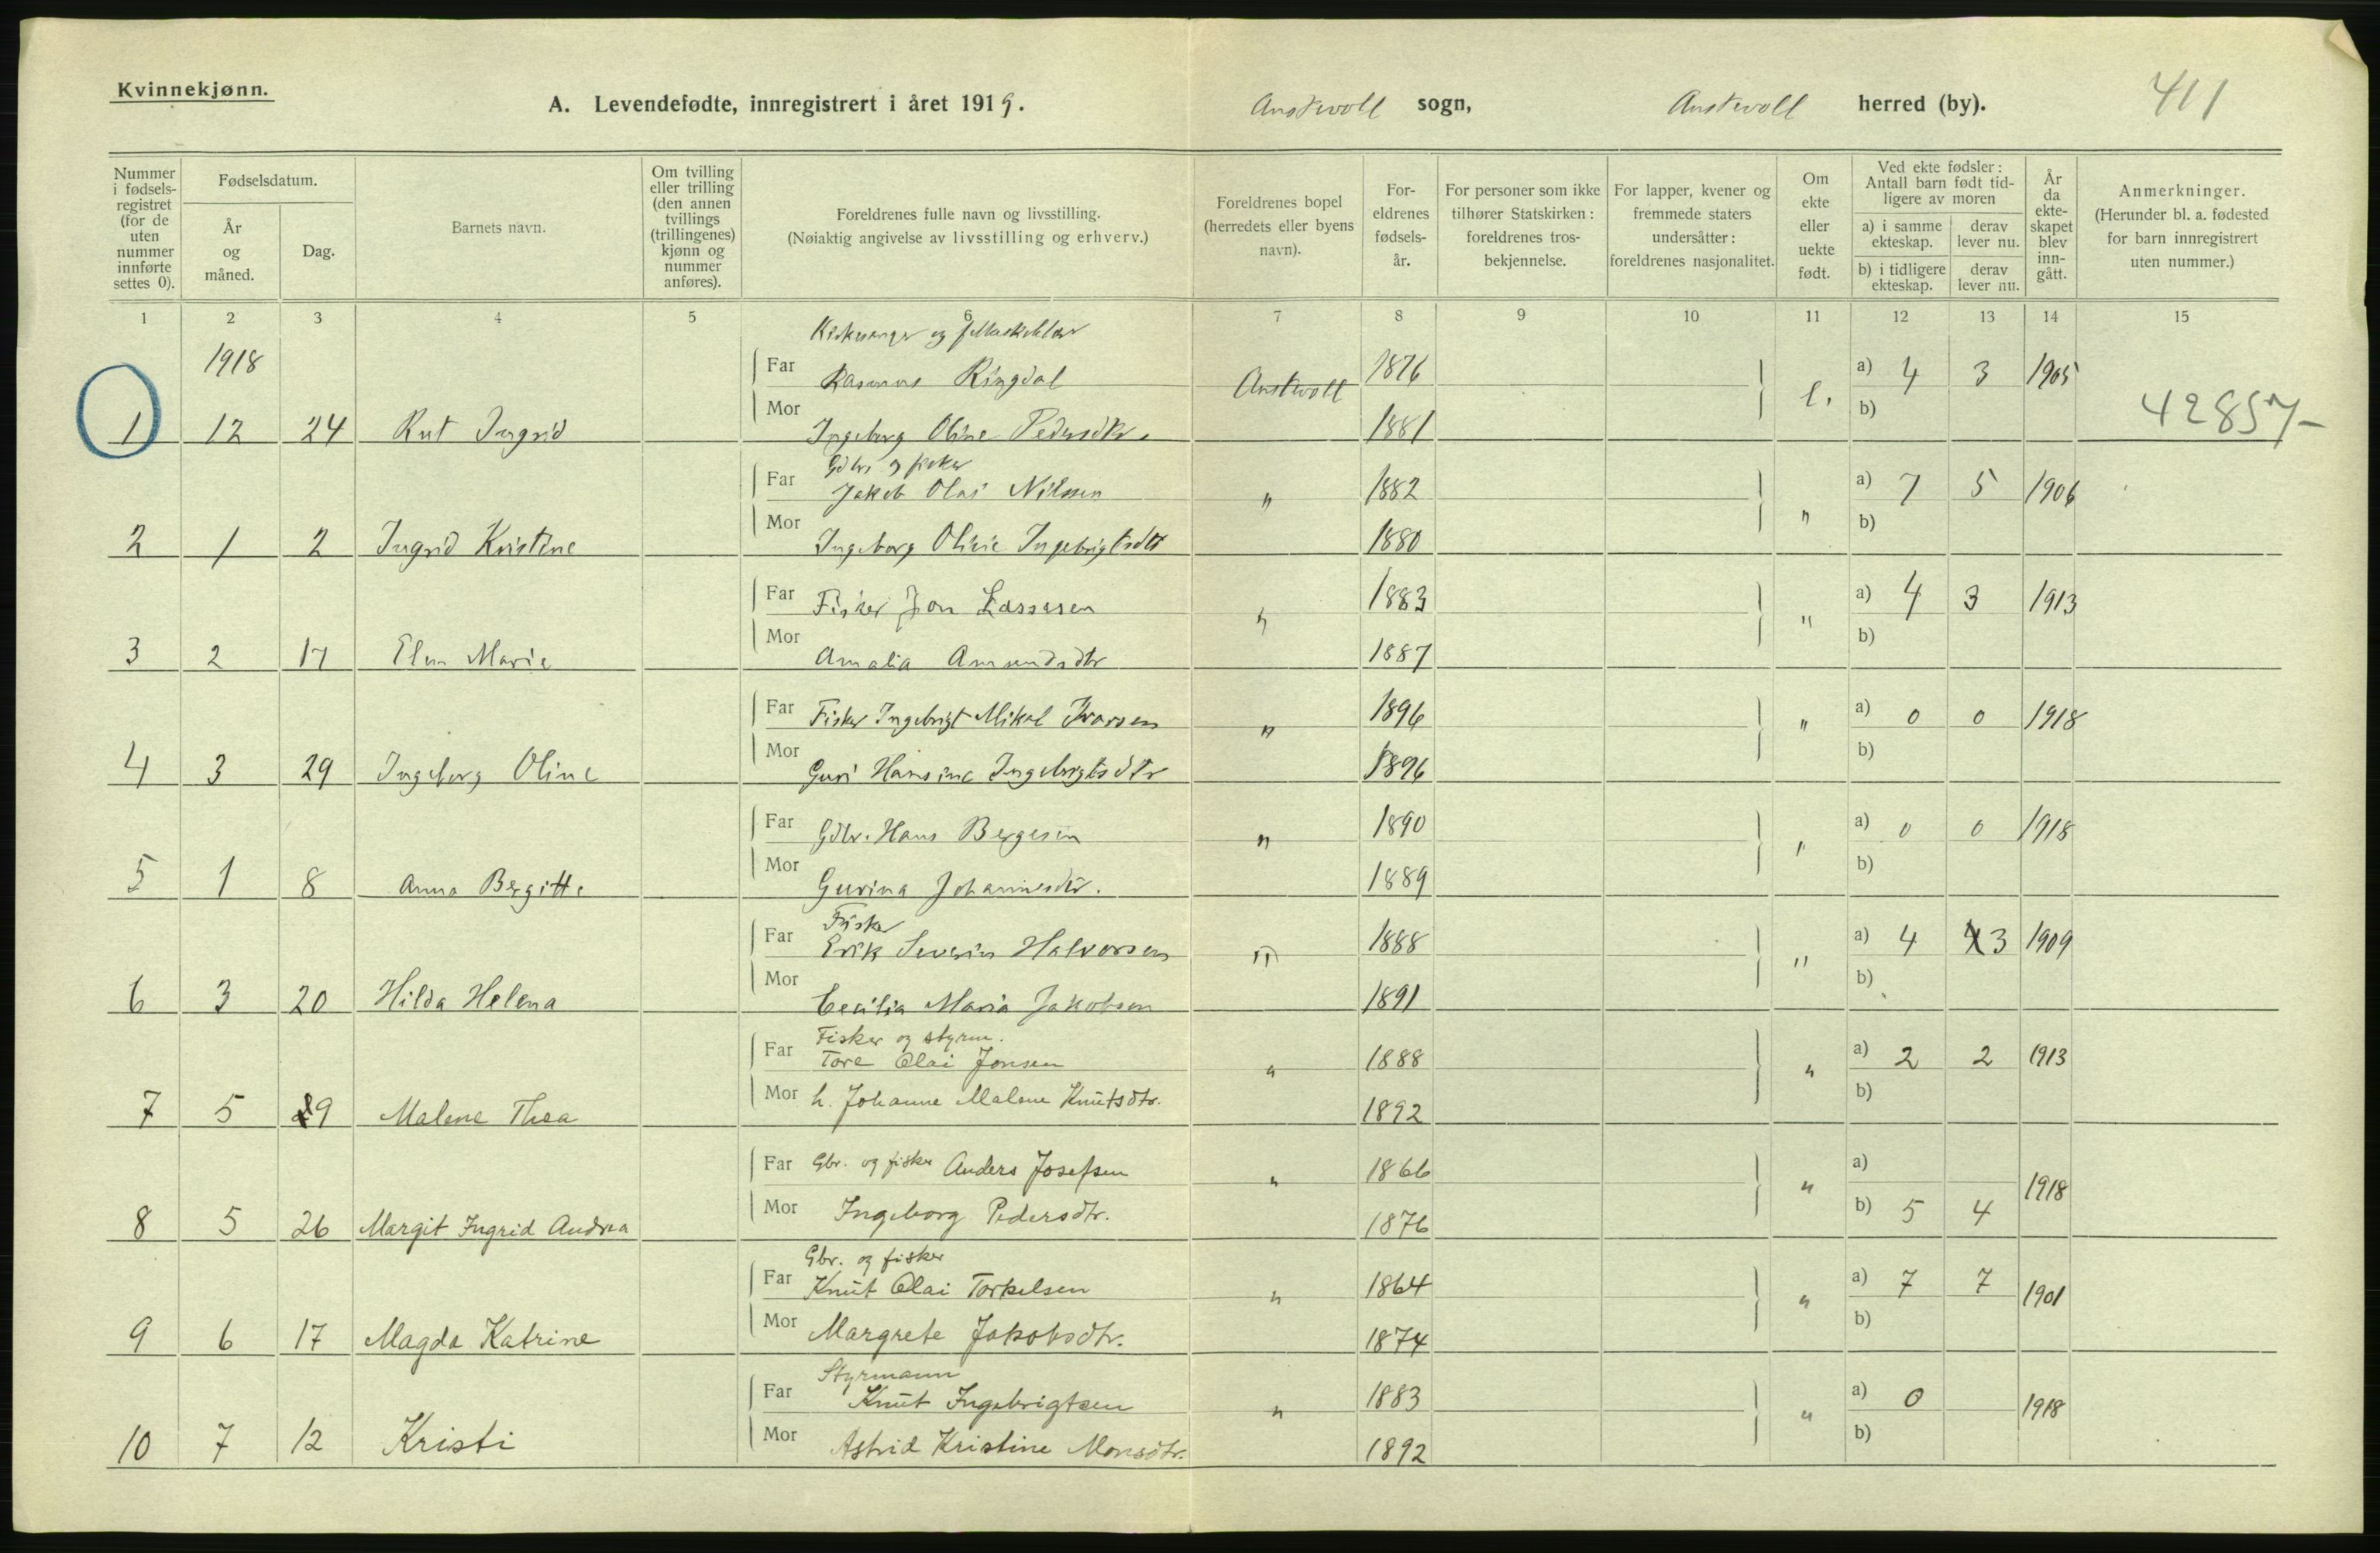 Kvinnekjønn.
A. Levendefødte, innregistrert i året 1919. Austevoll sogn, Austevoll herred (by). 411
Nummer i fødsels-registret (for de uten nummer innførte settes 0).
Fødselsdatum.
År og måned.
Dag.
Barnets navn.
Om tvilling eller trilling (den annen tvillings (trillingenes) kjønn og nummer anføres).
Foreldrenes fulle navn og livsstilling.
(Nøiaktig angivelse av livsstilling og erhverv.)
Foreldrenes bopel (herredets eller byens navn).
For-eldrenes fødsels-år.
For personer som ikke tilhører Statskirken: foreldrenes tros-bekjennelse.
For lapper, kvener og fremmede staters undersåtter: foreldrenes nasjonalitet.
Om ekte eller uekte født.
Ved ekte fødsler: Antall barn født tid-ligere av moren
a) i samme ekteskap. derav lever nu.
b) i tidligere ekteskap. derav lever nu.
År da ekte-skapet blev inn-gått.
Anmerkninger.
(Herunder bl. a. fødested for barn innregistrert uten nummer.)
1 2 3 4 5 6 7 8 9 10 11 12 13 14 15
1918 Kirkesanger og
Far Rasmus Ringdal Austevoll 1876 e. a) 4 3 1905
1 12 24 Rut Ingrid Mor Ingeborg Oline Pedersdtr. 1881 b) 42857-
Gdbr. og fisker
Far Jakob Olai Nilssen " 1882 " a) 7 5 1906
2 1 2 Ingrid Kristine Mor Ingeborg Olivie Ingebrigtsdtr 1880 b)
Far Fisker Jon Lassesen " 1883 " a) 4 3 1913
3 2 17 Elen Marie Mor Amalia Amundsdtr 1887 b)
Far Fisker Ingebrigt Mikal Ivarsen " 1896 " a) 0 0 1918
4 3 29 Ingeborg Oline Mor Guri Hansine Ingebrigtsdtr 1896 b)
Far Gdbr. Hans Bergesen " 1890 " a) 0 0 1918
5 1 8 Anna Bergitte Mor Gurina Johannesdtr. 1889 b)
Fisker
Far Erik Severin Halvorsen " 1888 " a) 4 3 1909
6 3 20 Hilda Helena Mor Cecilia Maria Jakobsen 1891 b)
Fisker og styrm.
Far Tore Olai Jonsen " 1888 " a) 2 2 1913
7 5 29 Malene Thea Mor h. Johanne Malene Knutsdtr. 1892 b)
Far Gbr. og fisker Anders Josefsen " 1866 " a) 1918
8 5 26 Margit Ingrid Andrea Mor Ingeborg Pedersdtr. 1876 b) 5 4
Gbr. og fisker
Far Knut Olai Torkelsen " 1864 " a) 7 7 1901
9 6 17 Magda Katrine Mor Margrete Jakobsdtr. 1874 b)
Styrmann
Far Knut Ingebrigtsen " 1883 " a) 0 1918
10 7 12 Kristi Mor Astrid Kristine Monsdtr. 1892 b)